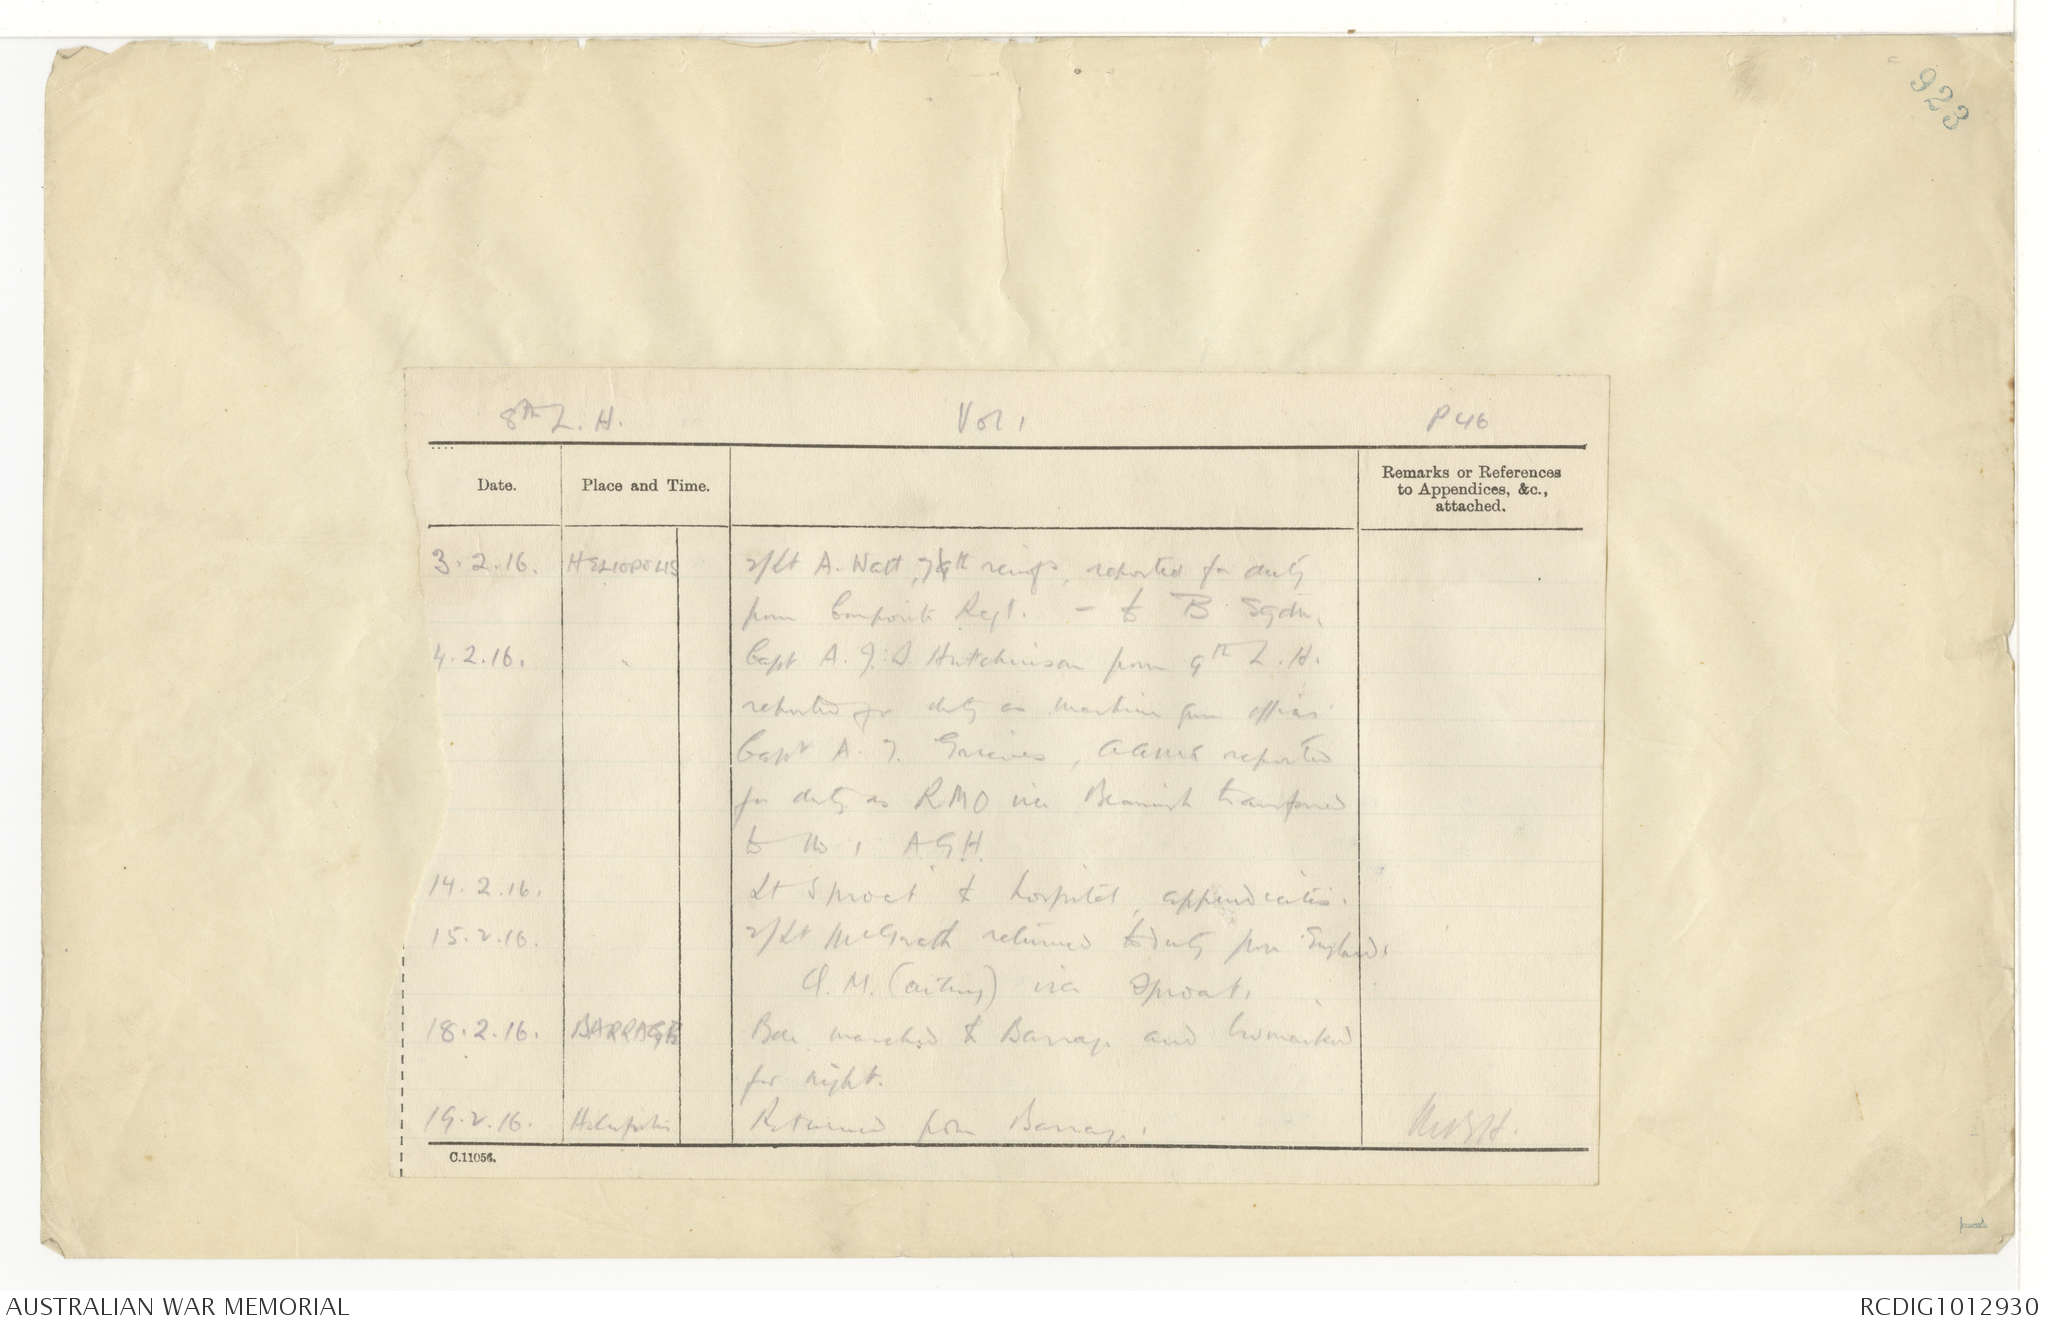 923
8th L. H. Vol 1 P 46
Date. Place and Time. Remarks or References to Appendices, &c., attached.
3.2.16. HELIOPOLIS 2/Lt A. Watt, reinfs, reported for duty
from Composite Regt. - to B Sqdn.
4.2.16. " Capt A. J. S Hutchinson from 9th L. H.
reported for duty as machine gun officer
Capt A. J. Grieves, AAMC reported
for duty as RMO vice Beamish transferred
to No 1 AGH.
14.2.16. Lt Sproat to hospital, appendicitis.
15.2.16. 2/Lt McGrath returned to duty from England.
Q.M. (acting) vice Sproat.
18.2.16. BARRAGE Bde marched to Barrage and bivouacked
for night.
19.2.16. Heliopolis Returned from Barrage.
C.11056.
AUSTRALIAN WAR MEMORIAL RCDIG1012930